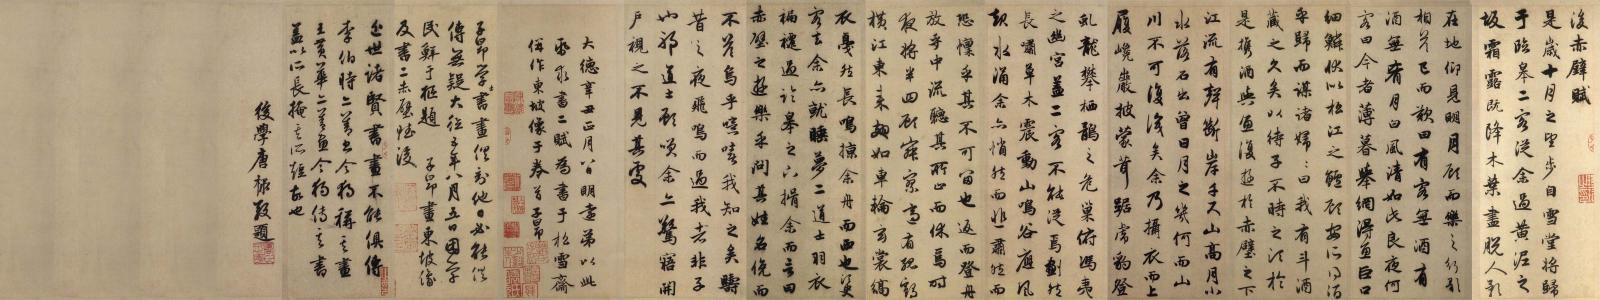 後赤壁賦
是歲十月之望步自雪堂將歸
于臨皋二客從余過黃泥之
坂霜露既降木葉盡脫人影
在地仰見明月顧而樂之行歌
相答已而歎曰有客無酒有
酒無肴月白風清如此良夜何
客曰今者薄暮舉網得魚巨口
細鱗狀似松江之鱸顧安所得酒
乎歸而謀諸婦〻曰我有斗酒
藏之久矣以待子不時之須於
是攜酒與魚復遊於赤壁之下
江流有聲斷岸千尺山高月小
水落石出曾日月之幾何而山
川不可復識矣余乃攝衣而上
履巉巖披蒙茸踞虎豹登
虬龍攀栖鶻之危巢俯馮夷
之幽宮蓋二客不能從焉劃然
長嘯草木震動山鳴谷應風
起水涌余亦悄然而悲肅然而
恐凜乎其不可留也返而登舟
放乎中流聽其所止而休焉時
夜將半四顧寂寥適有孤鶴
橫江東來翅如車輪玄裳縞
衣戛然長鳴掠余舟而西也須臾
客去余亦就睡夢二道士羽衣
褊褼過臨皋之下揖余而言曰
赤壁之遊樂乎問其姓名俛而
不答烏乎噫嘻我知之矣疇
昔之夜飛鳴而過我者非子
也耶道士顧笑余亦驚寤開
戶視之不見其處
大德辛丑正月八日明遠弟以此
紙求書二賦為書于松雪齋
併作東坡像于卷首子昂
子昂學士書畫俱到他日必能俱
傳無疑大德五年八月五日因學
民鮮于樞題 子昂畫東坡像
及書二赤壁賦後
近世諸賢書畫不能俱傳
李伯時二者今獨稱其畫
王黃華二者今獨傳其書
蓋以所長掩其所短故也
後學唐 題